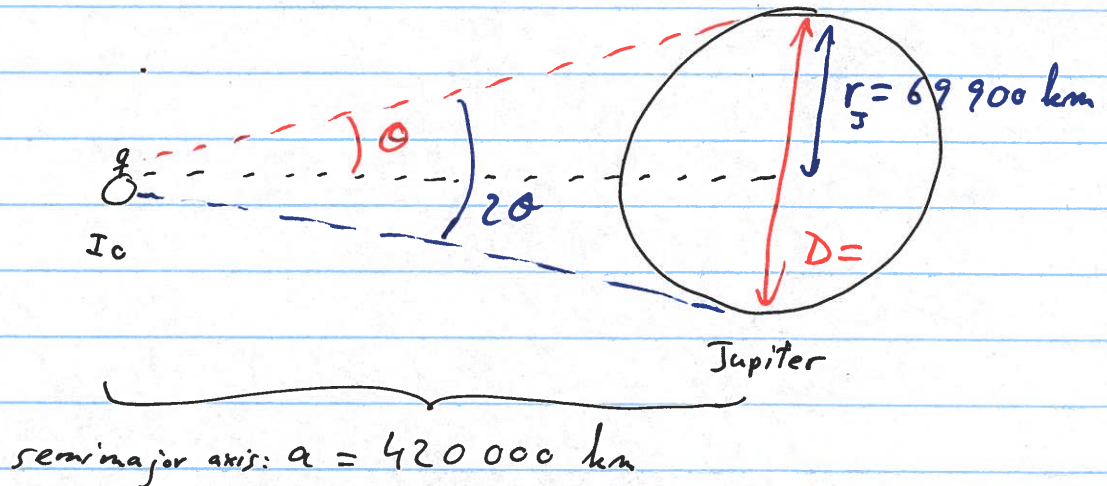 r_J = 69 900 km
θ
2θ
Io
D=
Jupiter
semimajor axis: a = 420 000 km